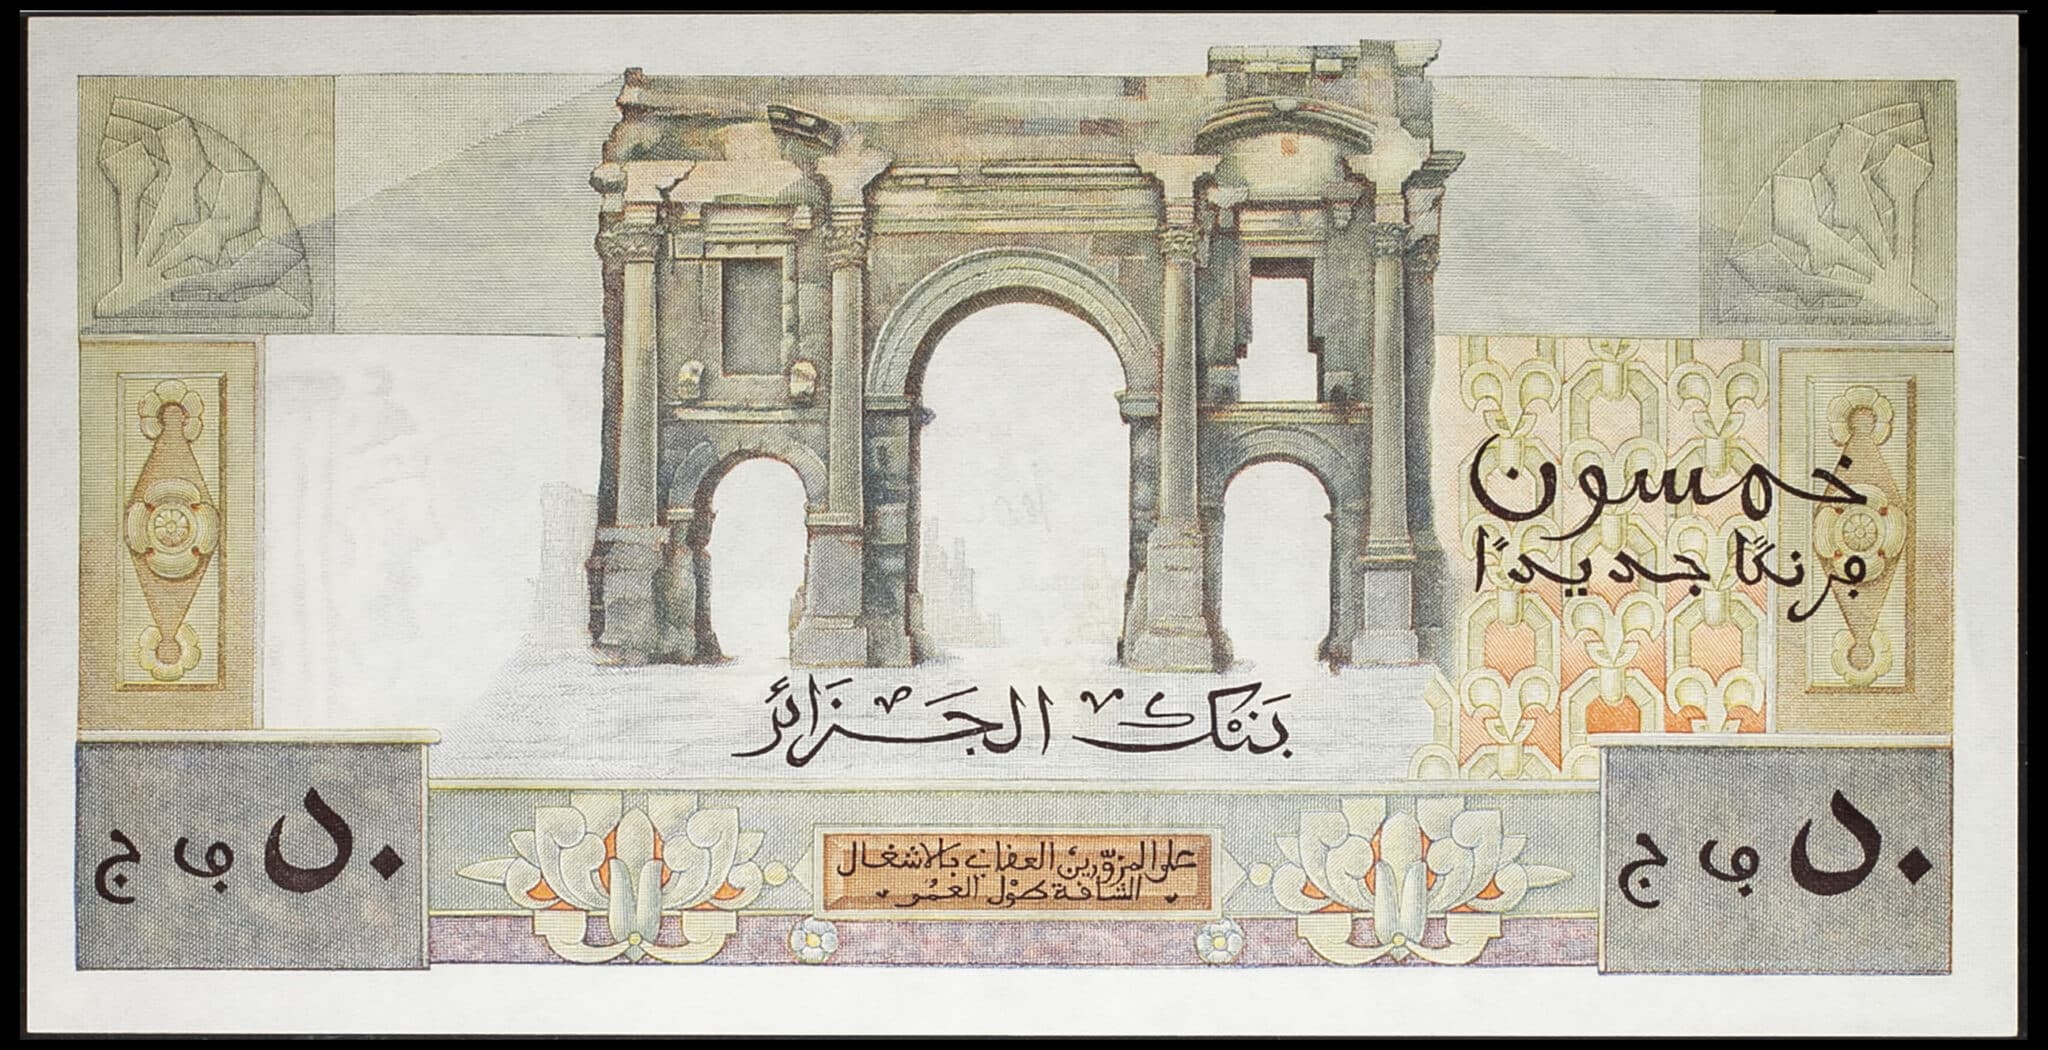 خمسون
فرنكًا جديدًا
بَنْك الجَزَائر
٥٠ ف ج
على المزوّرين العقاب بالاشغال
الشاقة طوْل العمُر
٥٠ ف ج